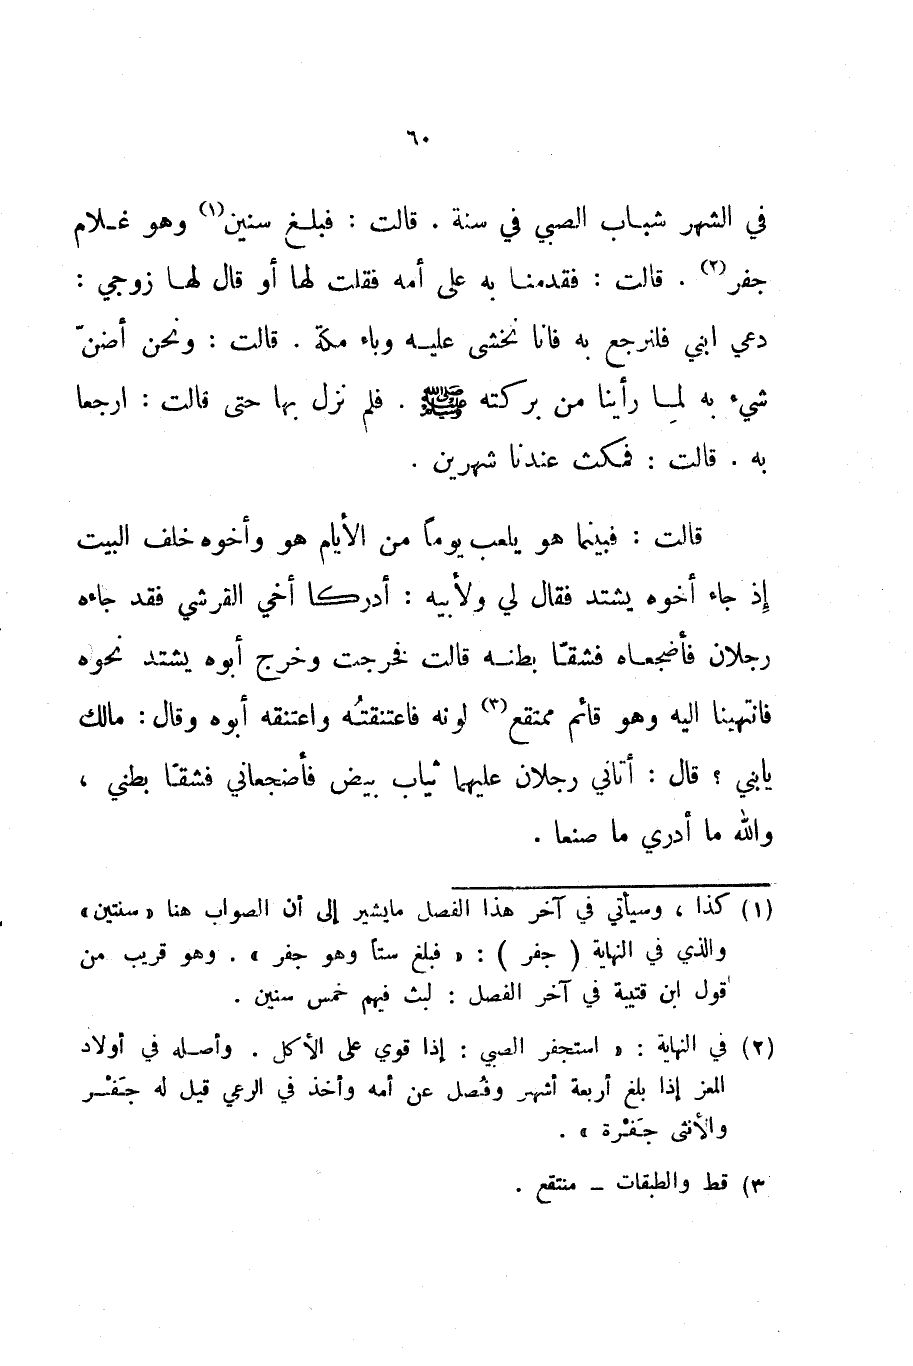 ٦٠
في الشهر شباب الصبي في سنة . قالت : فبلغ سنين(١) وهو غلام
جفر(٢) . قالت : فقدمنا به على أمه فقلت لها أو قال لها زوجي :
دعي ابني فلنرجع به فانا نخشى عليه وباء مكة . قالت : ونحن أضنّ
شيء به لِما رأينا من بركته ﷺ . فلم نزل بها حتى قالت : ارجعا
به . قالت : فمكث عندنا شهرين .
قالت : فبينما هو يلعب يوماً من الأيام هو وأخوه خلف البيت
إذ جاء أخوه يشتد فقال لي ولأبيه : أدركا أخي القرشي فقد جاءه
رجلان فأضجعاه فشقّا بطنه قالت فخرجت وخرج أبوه يشتد نحوه
فانتهينا اليه وهو قائم ممتقع(٣) لونه فاعتنقتُه واعتنقه أبوه وقال : مالك
يابني ؟ قال : أتاني رجلان عليهما ثياب بيض فأضجعاني فشقّا بطني ،
والله ما أدري ما صنعا .
(١) كذا ، وسيأتي في آخر هذا الفصل مايشير إلى أن الصواب هنا «سنتين»
والذي في النهاية ( جفر ) : « فبلغ ستاً وهو جفر » . وهو قريب من
قول ابن قتيبة في آخر الفصل : لبث فيهم خمس سنين .
(٢) في النهاية : « استجفر الصبي : إذا قوي على الأكل . وأصله في أولاد
المعز إذا بلغ أربعة أشهر وفُصل عن أمه وأخذ في الرعي قيل له جَفْر
والأنثى جَفْرة » .
٣) قط والطبقات – منتقع .